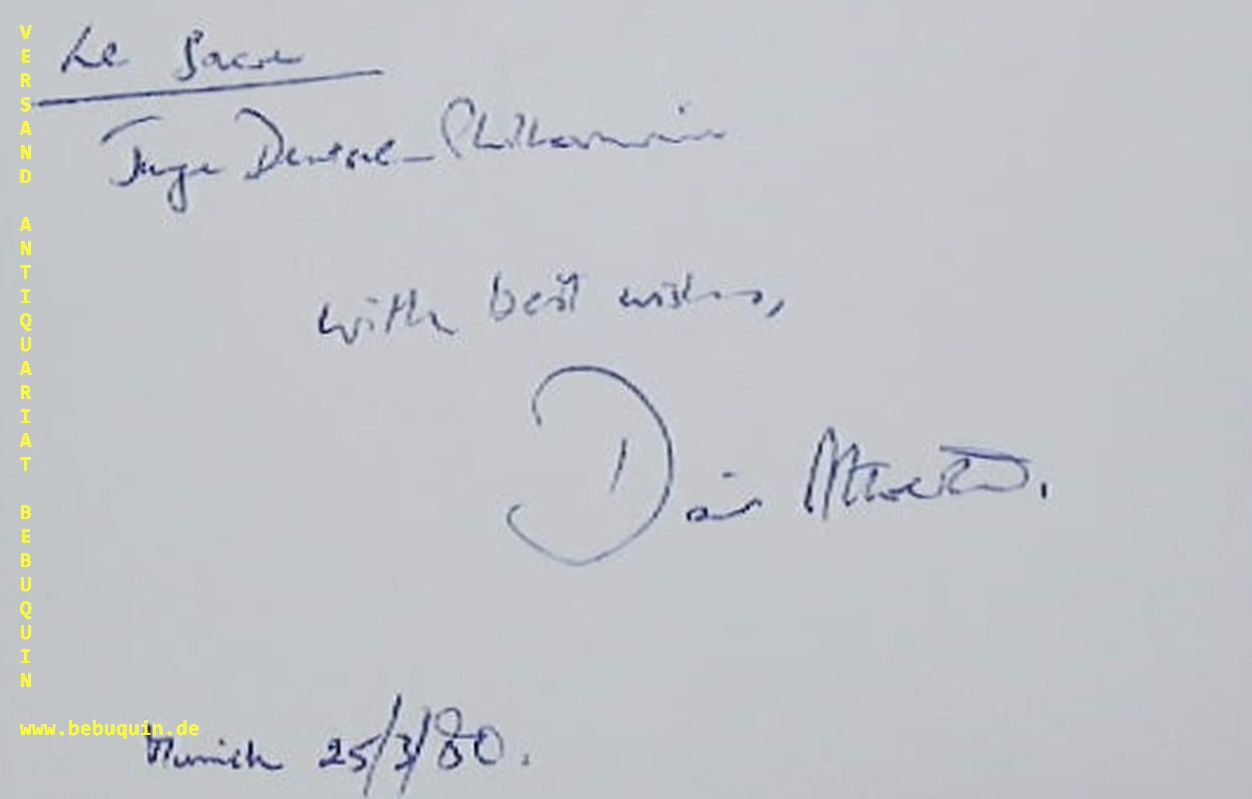 Le Sacre
Junge Deutsche Philharmonie
with best wishes,
David Atherton.
Munich 25/3/80.
VERSAND ANTIQUARIAT BEBUQUIN
www.bebuquin.de